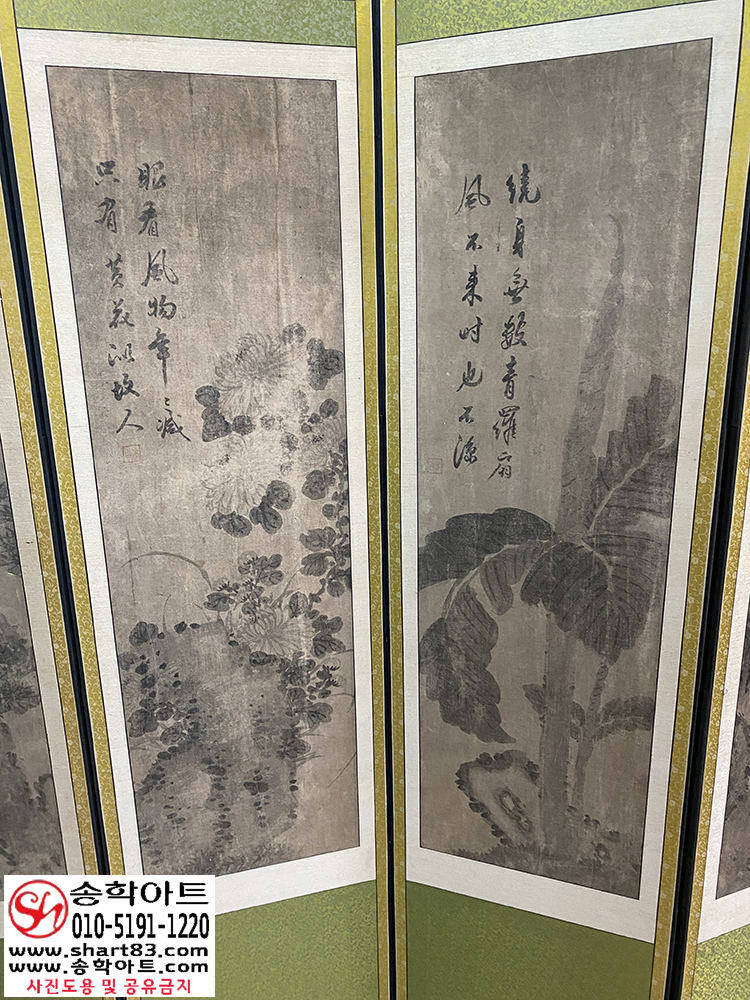 繞身無數青羅扇
風不来时也不涼
眼看風物年〻減
只有黃花似故人
Sh 송학아트
010-5191-1220
www.shart83.com
www.송학아트.com
사진도용 및 공유금지